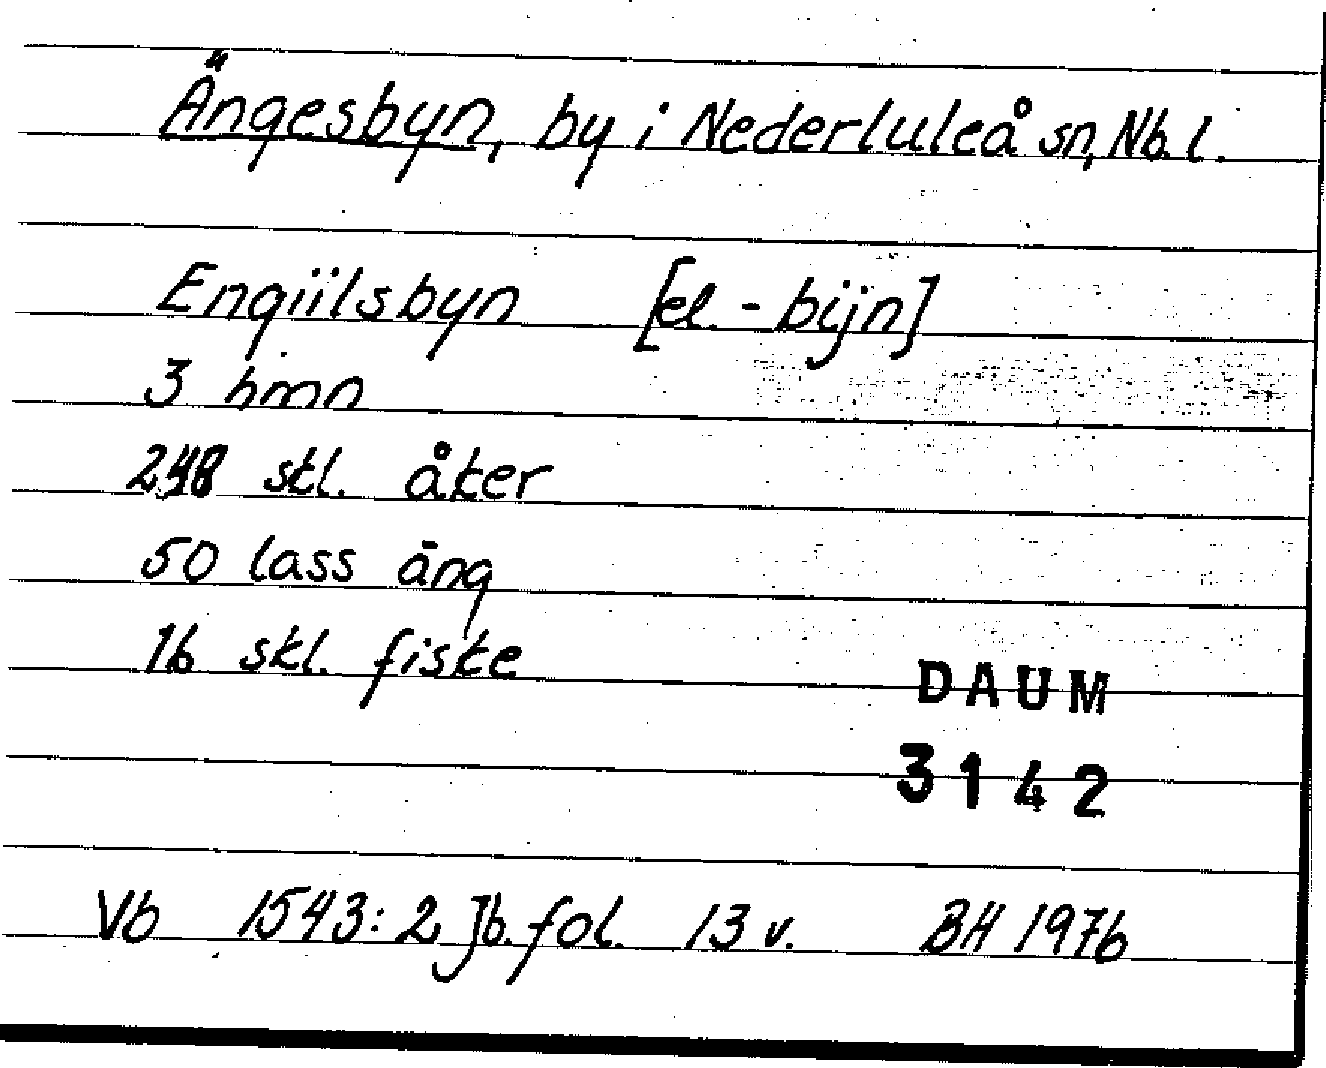 Ängesbyn, by i Nederluleå sn, Nb. l.
Engiilsbyn [el. -bijn]
3 hmn
248 skl. åker
50 lass äng
16 skl. fiske
DAUM
3142
Vb 1543:2 Jb. fol. 13 v. BH 1976